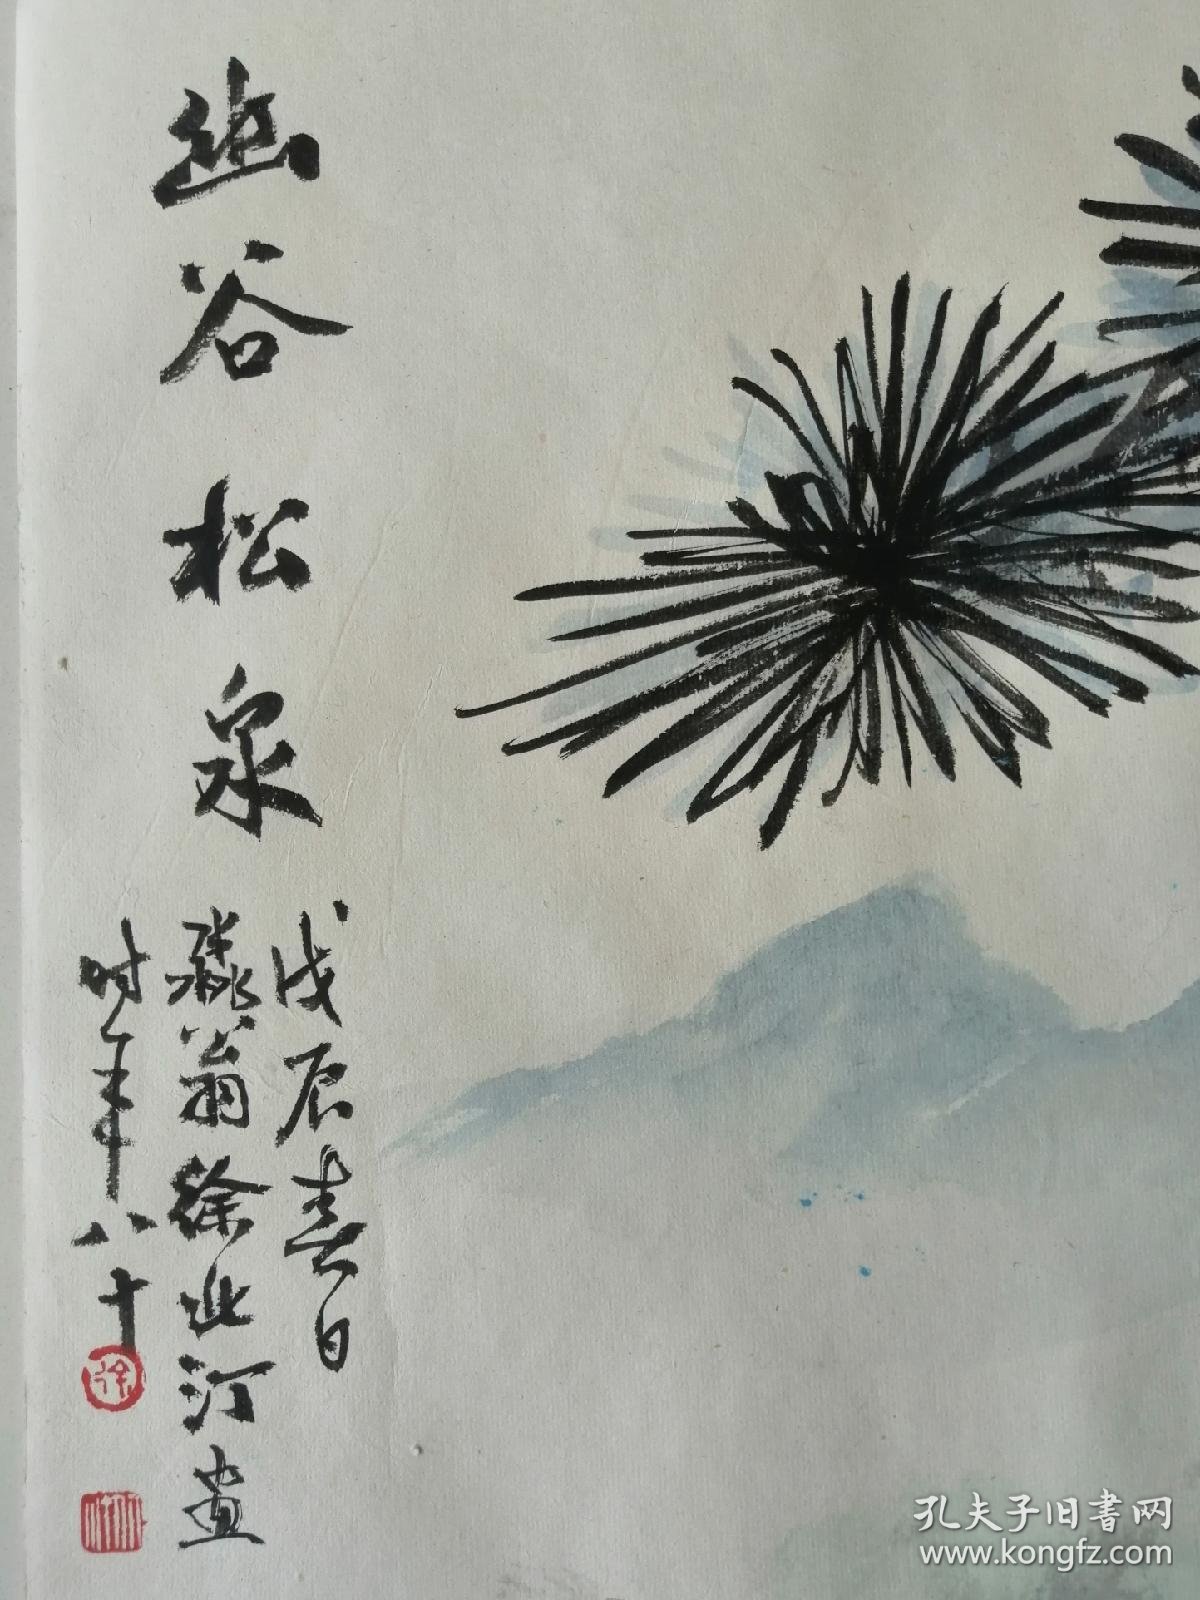 幽谷松泉
戊辰春日
淼翁徐北汀画
时年八十
徐
孔夫子旧书网
www.kongfz.com